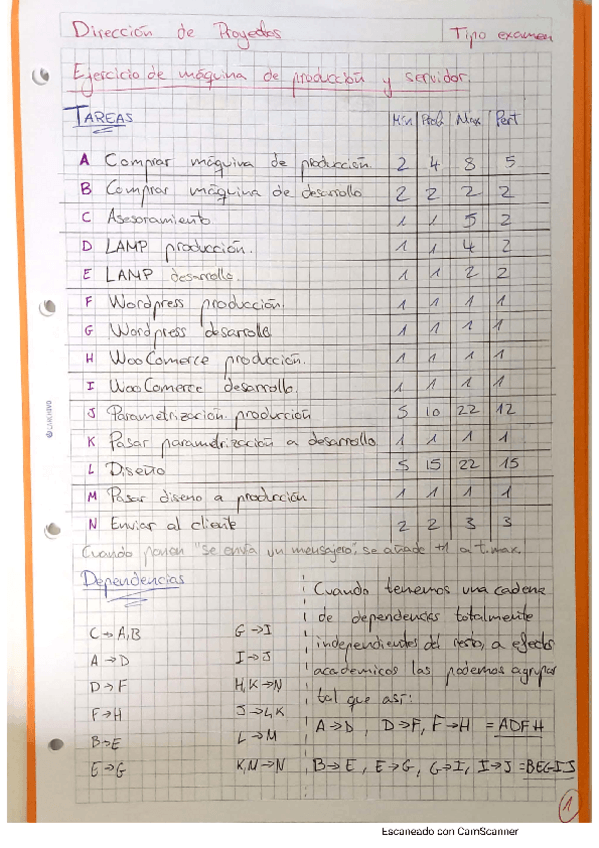 Dirección de Proyectos
Tipo examen
Ejercicio de máquina de producción y servidor.
TAREAS Min Prob Max Pert
A Comprar máquina de producción 2 4 8 5
B Comprar máquina de desarrollo 2 2 2 2
C Asesoramiento 1 1 5 2
D LAMP producción. 1 1 4 2
E LAMP desarrollo. 1 1 2 2
F Wordpress producción. 1 1 1 1
G Wordpress desarrollo 1 1 1 1
H WooComerce producción. 1 1 1 1
I WooComerce desarrollo. 1 1 1 1
J Parametrización producción 5 10 22 12
K Pasar parametrización a desarrollo 1 1 1 1
L Diseño 5 15 22 15
M Pasar diseño a producción 1 1 1 1
N Enviar al cliente 2 2 3 3
Cuando ponan "se envía un mensajero", se añade +1 a t.max.
Dependencias
C→A,B
A→D
D→F
F→H
B→E
E→G
G→I
I→J
H,K→N
J→L,K
L→M
K,M→N
Cuando tenemos una cadena
de dependencias totalmente
independientes del resto, a efectos
academicos las podemos agrupar
tal que así:
A→D, D→F, F→H = ADFH
B→E, E→G, G→I, I→J = BEGIJ
1
Escaneado con CamScanner